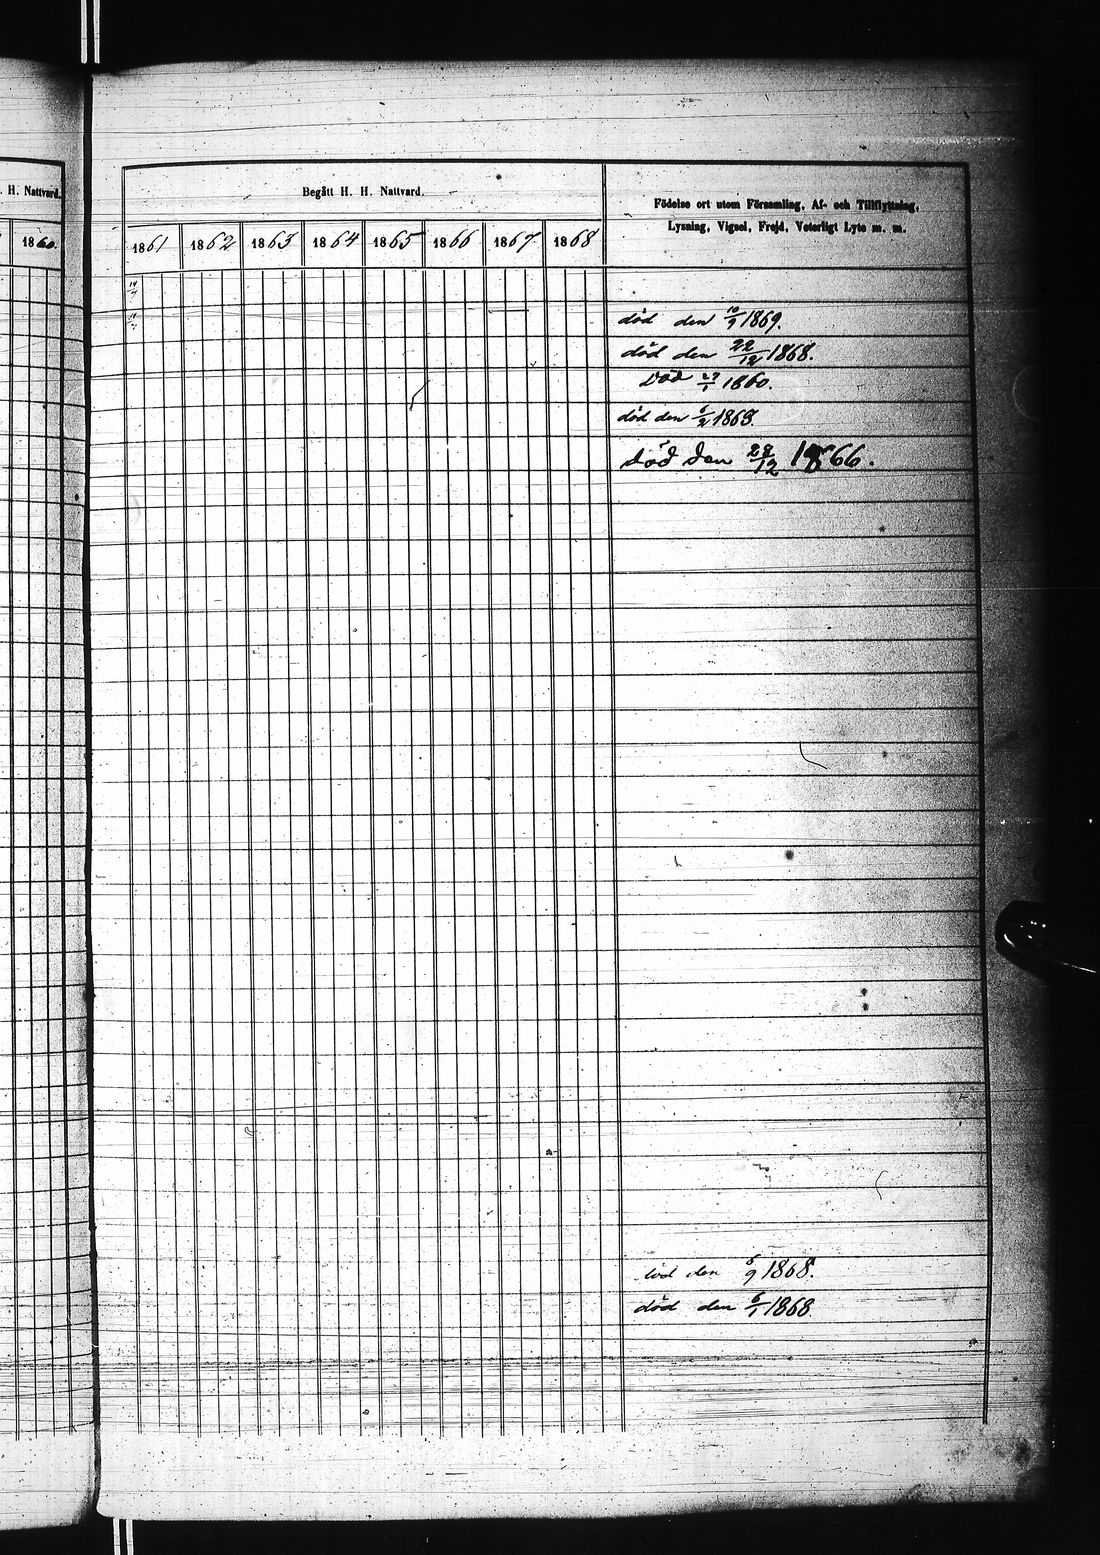 . H. Nattvard.
1860.
Begått H. H. Nattvard.
Födelse ort utom Församling, Af- och Tillflyttning,
Lysning, Vigsel, Frejd, Veterligt Lyte m. m.
1861 1862 1863 1864 1865 1866 1867 1868
död den 10/9 1869.
död den 22/12 1868.
Död 27/1 1860.
död den /2 1869.
död den 28/12 1866.
död den 6/9 1868.
död den 6/1 1868